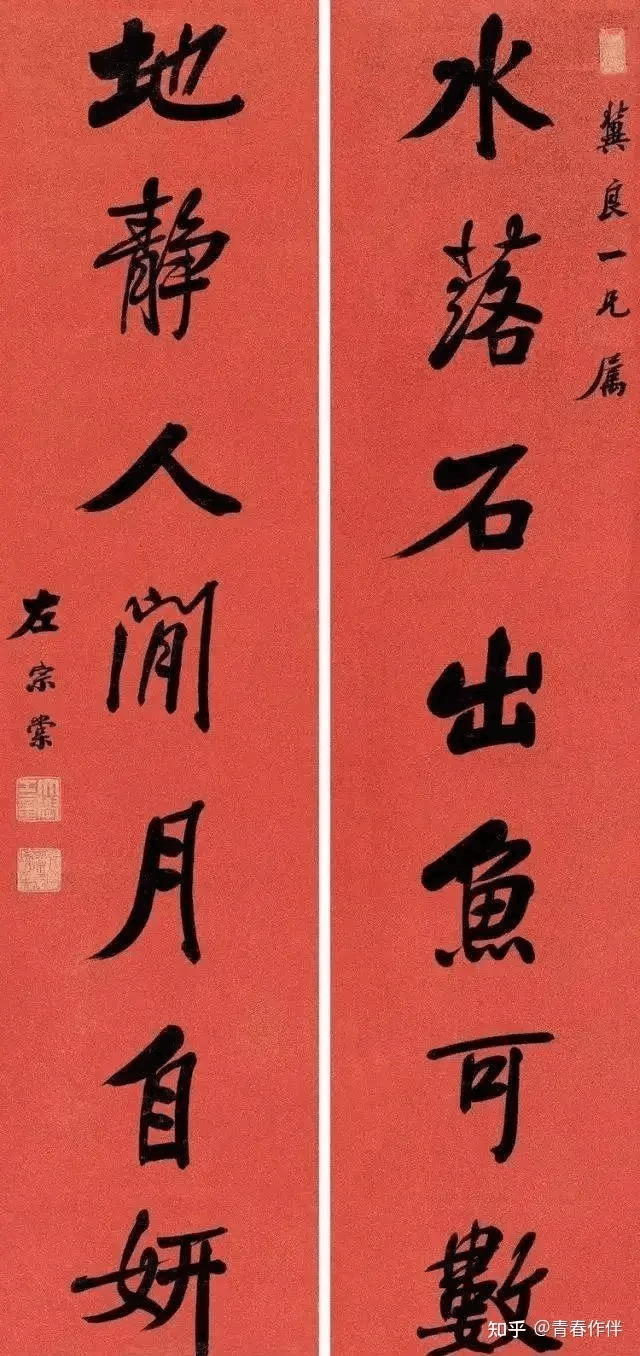 冀良一兄属
水落石出魚可數
地靜人閒月自妍
左宗棠
知乎 @青春作伴